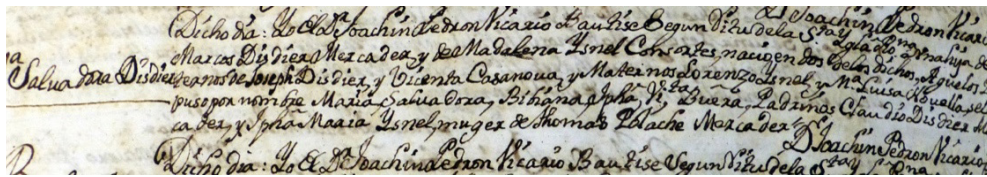 Dr Joachin Pedron Vicario
Dicho dia: Yo El Dr Joachin Pedron Vicario Bautise Segun Ritu de la Sta y
Marcos Disdier Mercader, y de Madalena Ysnel Consortes, nacio en dos de los dichos, Aguelos
Mª Salvadora Disdier
ternos Joseph Disdier, y Vicenta Casanova, y Maternos Lorenzo Ysnel, y Mª Luisa Novella, se le
puso por nombre Maria Salvadora, Bibiana, Jpha, Vta, Buena, Padrinos Claudio Disdier
cader, y Jpha Maria Ysnel, muger de Thomas Polache Mercader
Dr Joachin Pedron Vicario
Dicho dia: Yo El Dr Joachin Pedron Vicario Bautise Segun Ritu de la Sta y